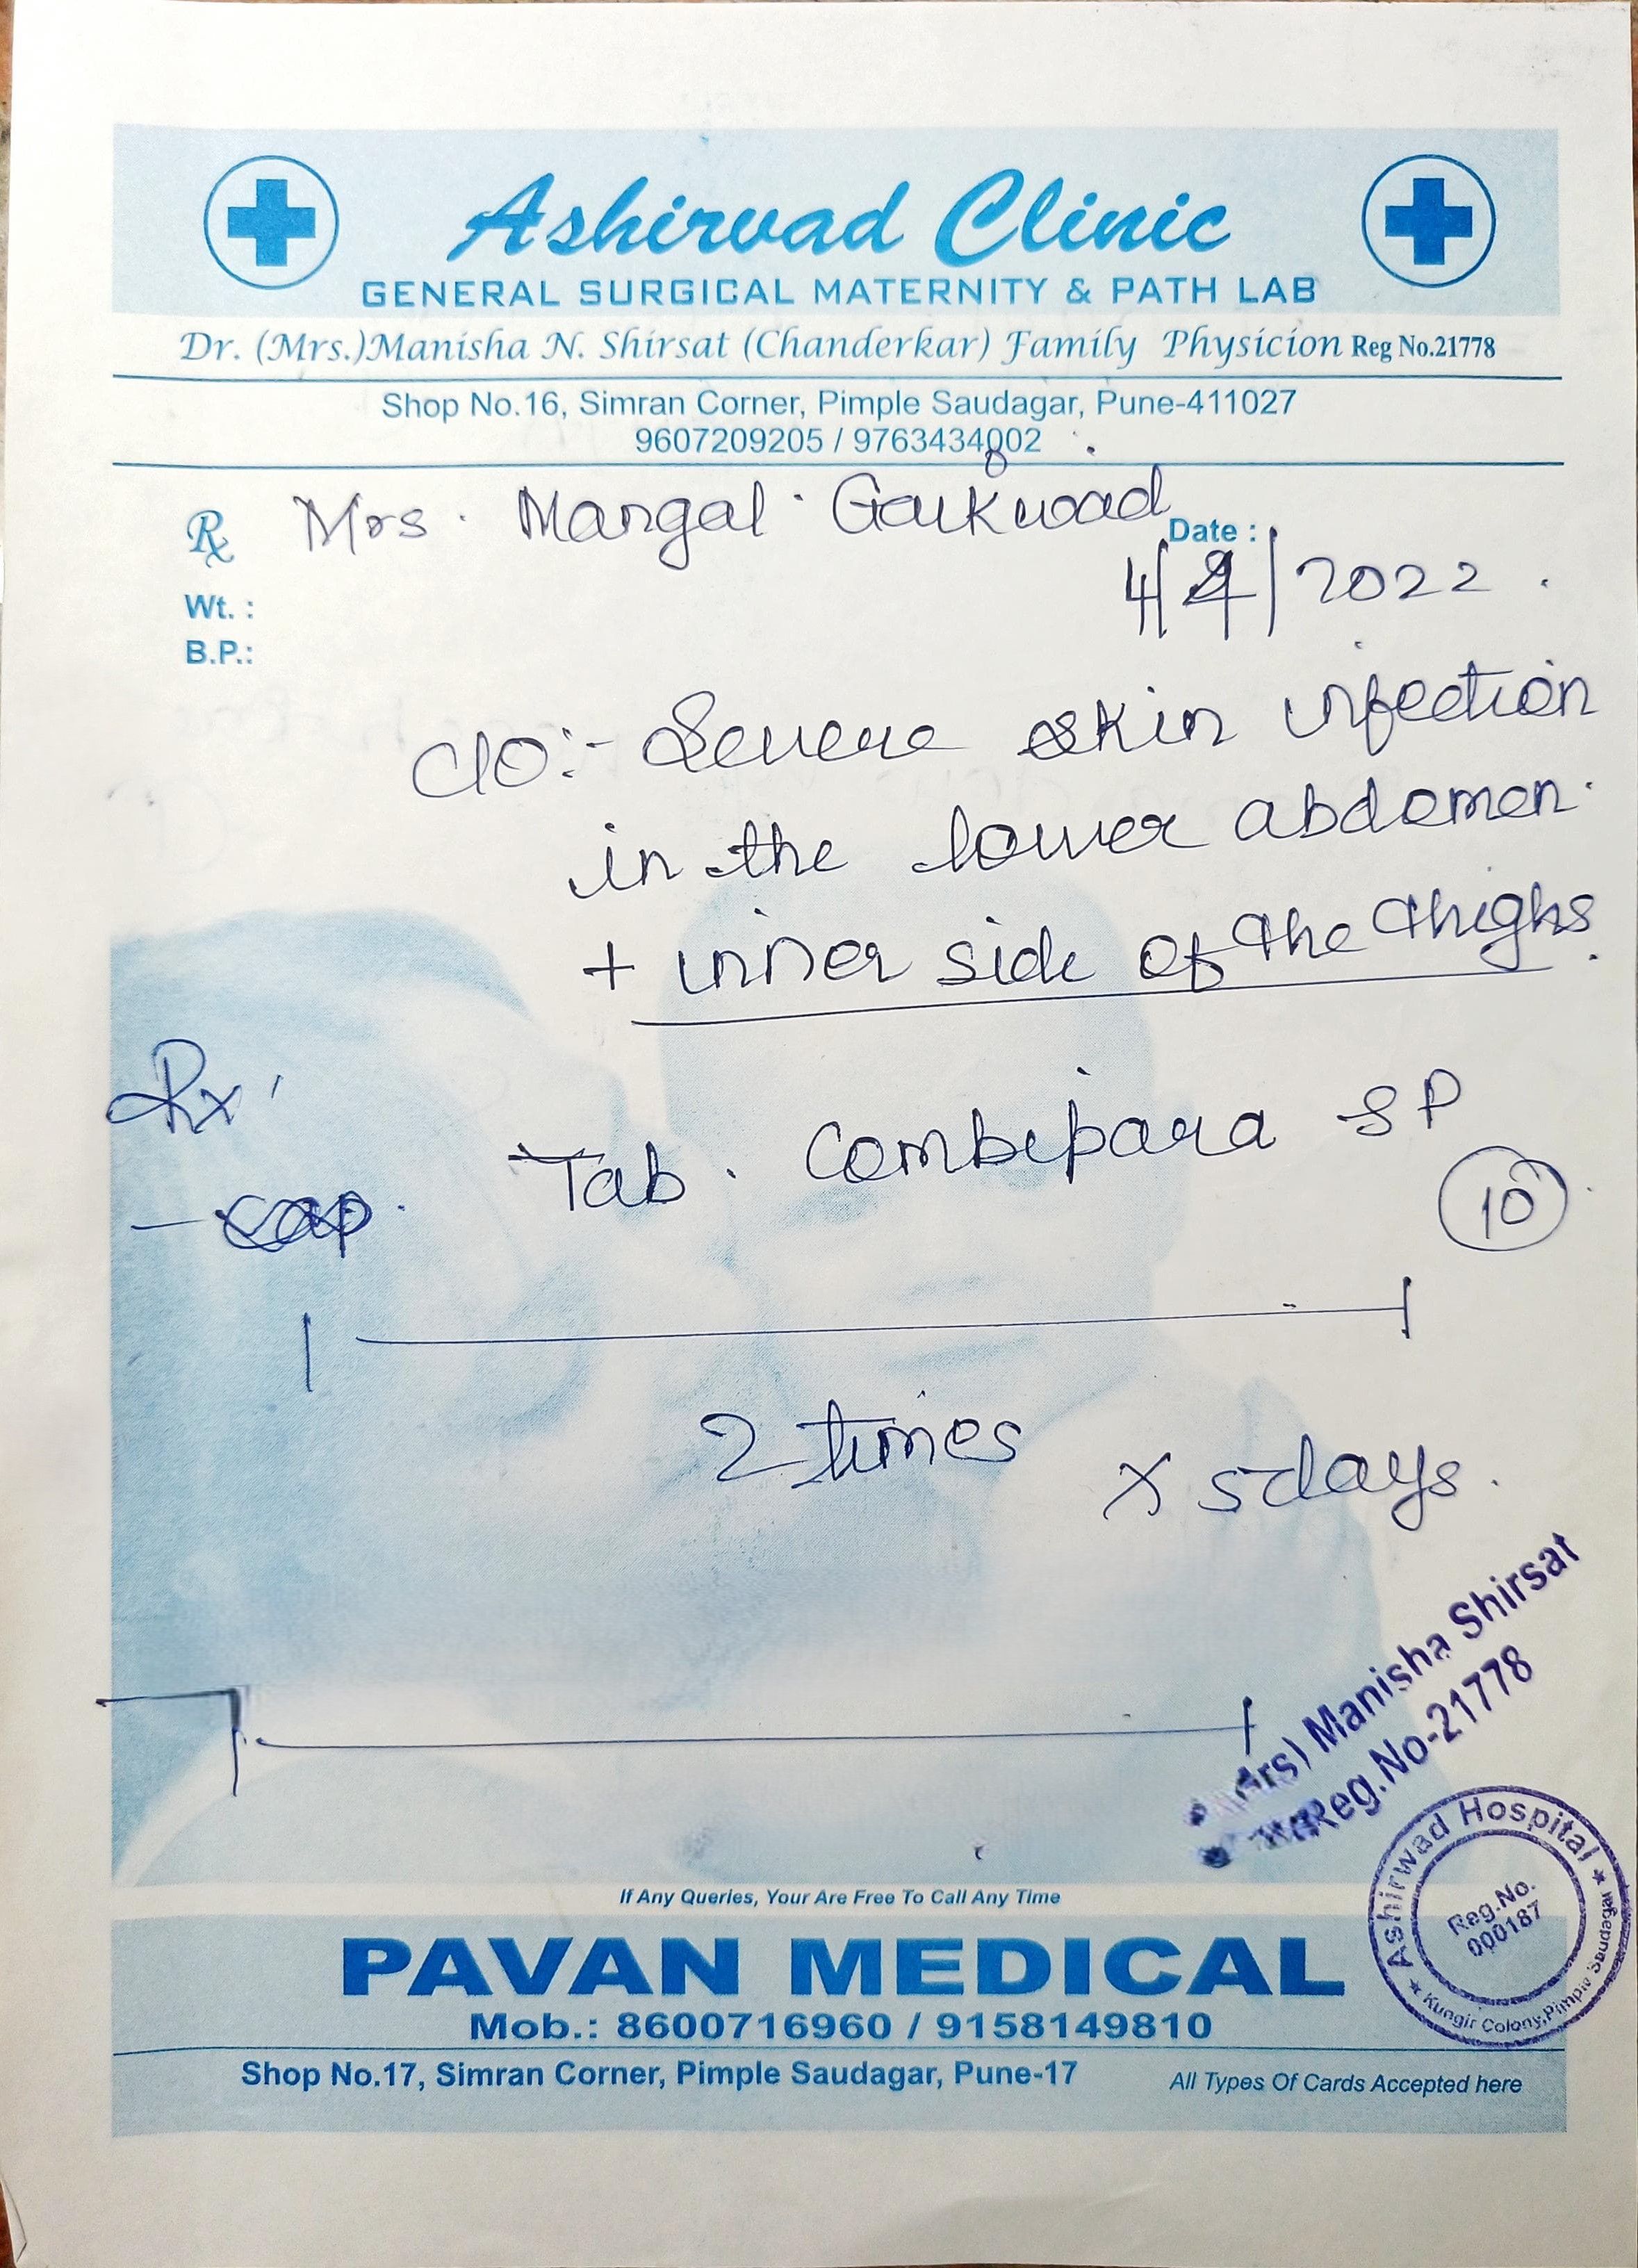 Ashirvad Clinic
GENERAL SURGICAL MATERNITY & PATH LAB
Dr. (Mrs.)Manisha N. Shirsat (Chanderkar) Family Physicion Reg No.21778
Shop No.16, Simran Corner, Pimple Saudagar, Pune-411027
9607209205 / 9763434002
Rx Mrs. Mangal. Gaikwad
Date :
4/ /2022.
Wt. :
B.P.:
C/O:- Severe skin infection
in the lower abdomen.
+ inner side of the thighs.
Rx,
Tab. Combipara SP
10
2 times x 5days.
(Mrs) Manisha Shirsat
Reg.No-21778
Ashirwad Hospital
Reg.No.
000187
If Any Queries, Your Are Free To Call Any Time
PAVAN MEDICAL
Mob.: 8600716960 / 9158149810
Shop No.17, Simran Corner, Pimple Saudagar, Pune-17
All Types Of Cards Accepted here